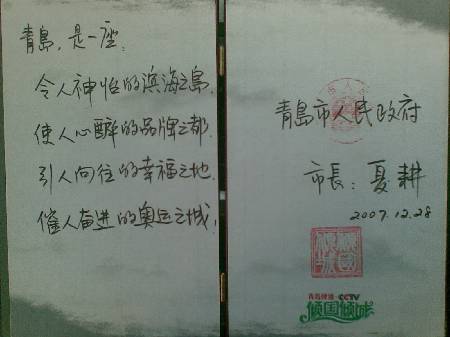 青島，是一座：
令人神怡的滨海之島，
使人心醉的品牌之都，
引人向往的幸福之地，
催人奋进的奥运之城！
青島市人民政府
市長：夏耕
2007.12.28
青島啤酒·CCTV
倾国倾城